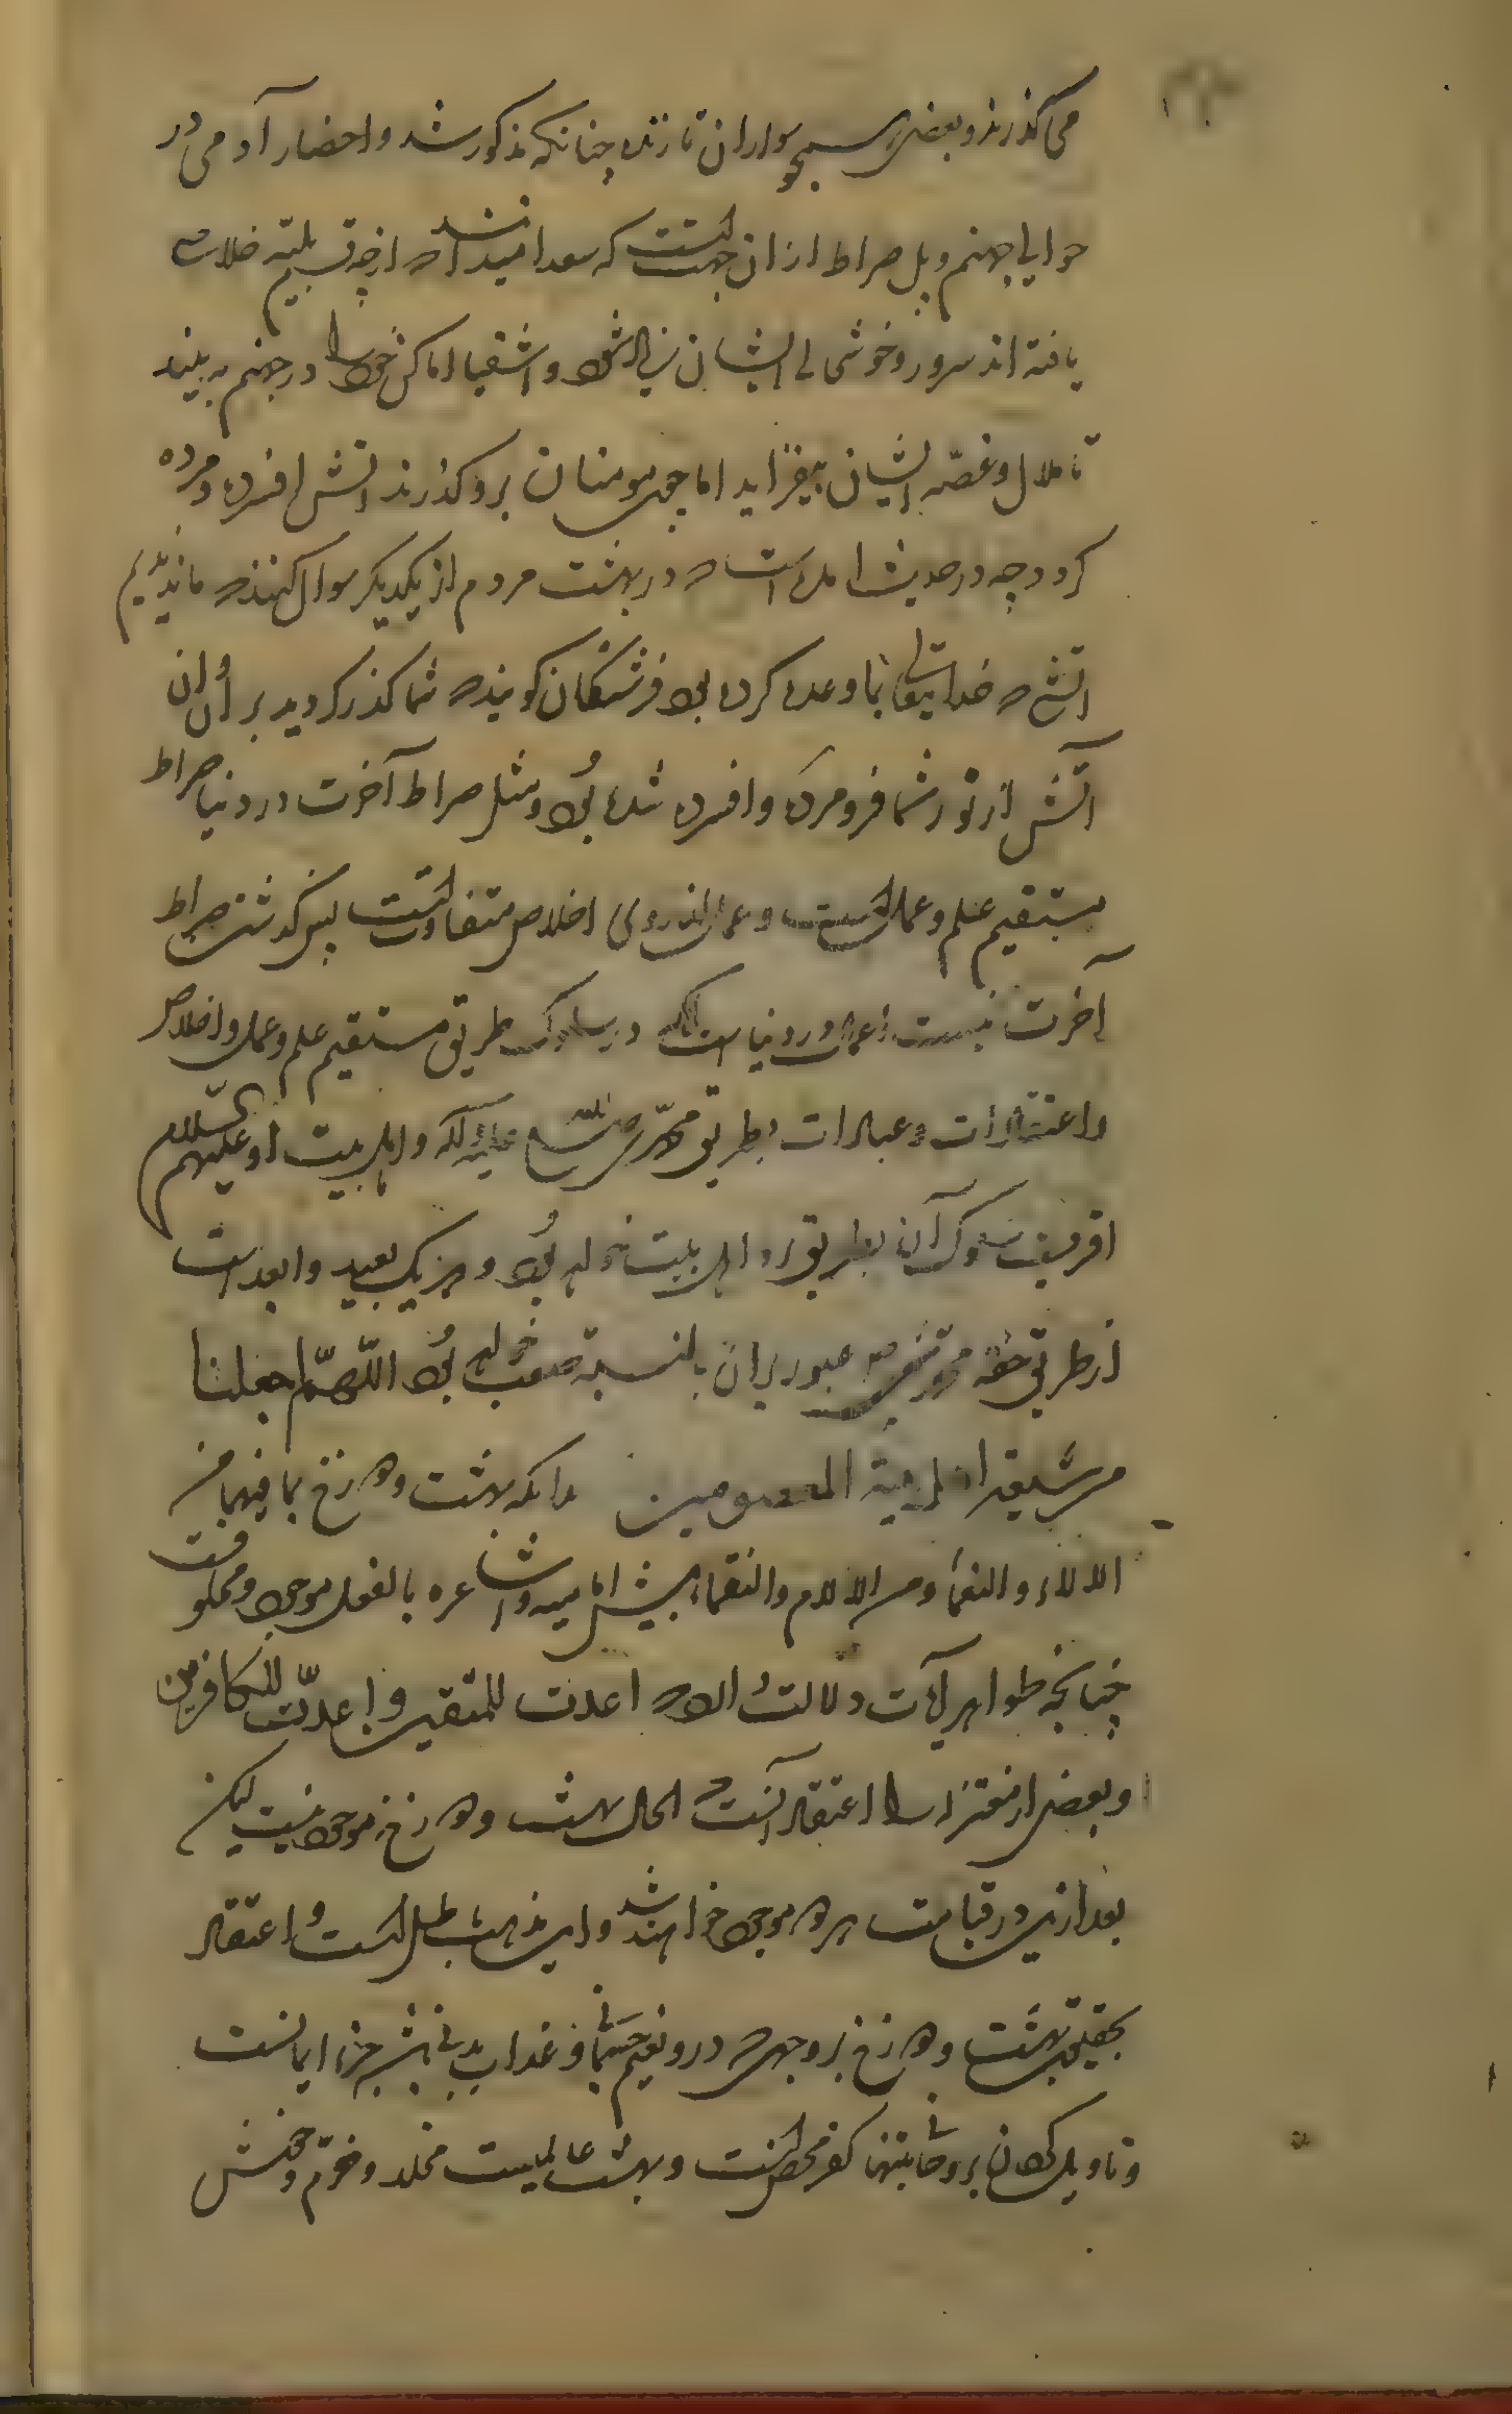 می‌گذرند و بعضی همچو سواران تازنده چنانکه مذکور شد و احضار آدمی در
حوالی جهنم و پل صراط از ان جهتست که سعدا میدانند که از چه بلیّه خلاصی
یافته اند سرور و خوشی ایشان زیاد شود و اشقیا اماکن خود را در جهنم به بینند
تا ملال و غصّه ایشان بیفزاید اما چون مومنان برو گذرند اتش افسرده و مرده
گردد چه در حدیث امده است که در بهشت مردم از یکدیگر سوال کنند که ما ندیدیم
اتشی که خدایتعالی بما وعده کرده بود فرشتگان گویند که شما گذر کردید بر آن ان
اتش از نور شما فرو مرده و افسرده شده بود و مثل صراط آخرت در دنیا صراط
مستقیم علم و عملست و عمل از روی اخلاص متفاوتست پس گذشتن صراط
آخرت نیست اعمال در دنیاست در سلوک طریق مستقیم علم و عمل و اخلاص
و اعتقادات و عبادات بطریق محمّد صلی الله علیه و اله و اهل بیت او علیهم السّلام
اقرب سلوک آن بطریق او اهل بیت خواهد بود و هر یک بعید و ابعد است
از طریق حقه عبور بران بالنسبة صعب خواهد بود اللّهمّ اجعلنا
من شیعة الایمة المعصومین بدانکه بهشت و دوزخ بما فیهما من
الالاء و النعمأ و من الالام و النقماء پیش امامیه و اشاعره بالفعل موجود و مخلوقست
چنانچه ظواهر آیات دلالت دارد که اعدت للمتقین و اعدّت للکافرین
و بعضی از معتزله را اعتقاد آنست که الحال بهشت و دوزخ موجود نیست لیکن
بعد ازین در قیامت هر دو موجود خواهند شد و این مذهب باطل است و اعتقاد
بحقیقت بهشت و دوزخ بر وجهی که درو نعیم جسمانی و عذاب بدنی باشد جزء ایمانست
و تاویل کردن بروحانی تنها کفر محض است و بهشت عالمیست مخلد و خرّم و خوش